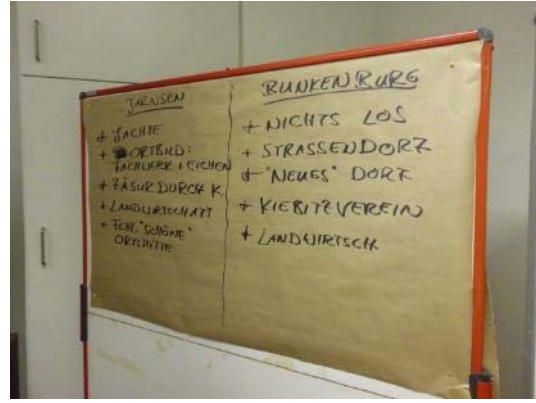 JARNSEN
+ LACHTE
+ ORTBILD:
FACHWERK + EICHEN
+ ZÄSUR DURCH K
+ LANDWIRTSCHAFT
+ FEHL. "SCHÖNE"
ORTSMITTE
BUNKENBURG
+ NICHTS LOS
+ STRASSENDORF
+ "NEUES" DORF
+ KIEBITZVEREIN
+ LANDWIRTSCH